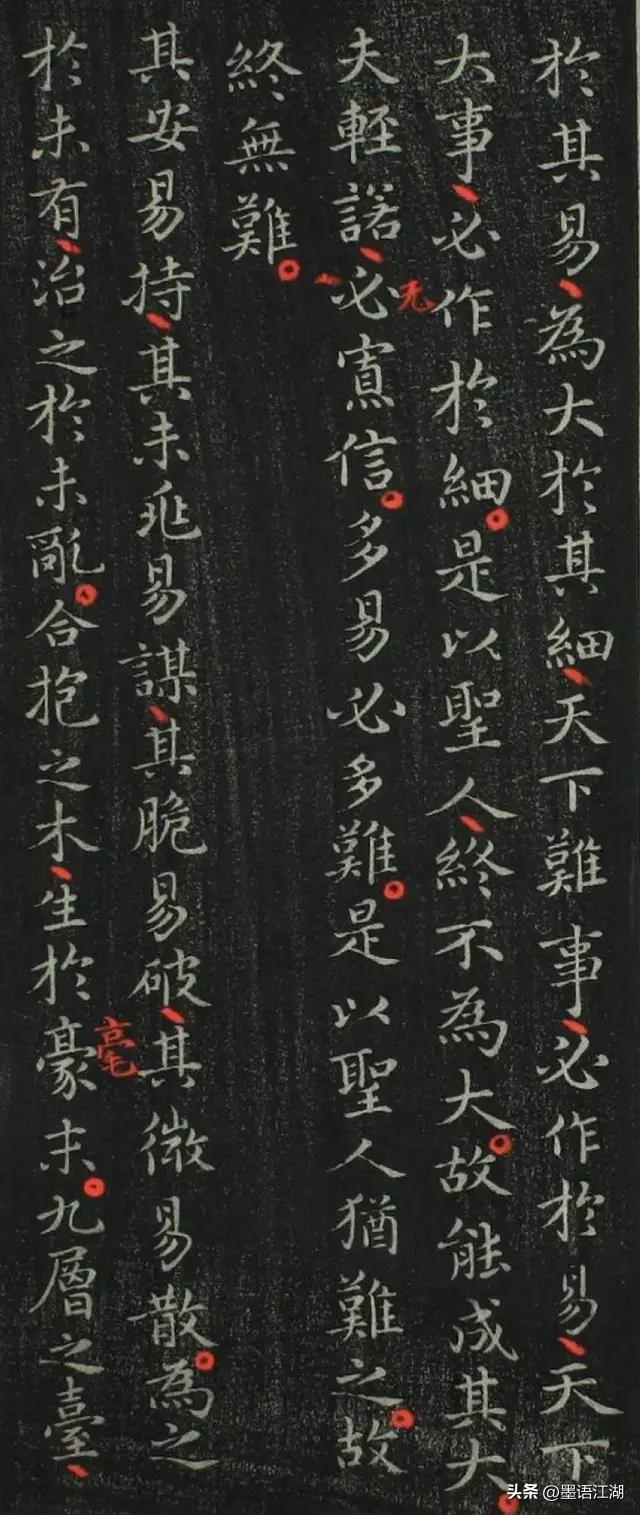 於其易、為大於其細、天下難事、必作於易、天下
大事、必作於細。是以聖人、終不為大。故能成其大。
无
夫輕諾、必寡信。多易必多難。是以聖人猶難之。故
終無難。
其安易持、其未兆易謀、其脆易破、其微易散。為之
毫
於未有、治之於未亂。合抱之木、生於豪末。九層之臺、
头条 @墨语江湖